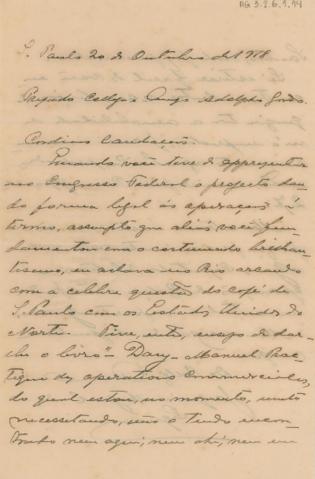 AG 3.2.6.1.14
S. Paulo 20 de Outubro de 1918
Prezado Collega e Amigo Adolpho Gordo.
Cordiaes saudações.
Quando você teve de appresentar
ao Congresso Federal o projecto dan
do forma legal ás operações a
termo, assumpto que aliás você fun
damentou com o costumado brilhan
tismo, eu estava no Rio
com a celebre questão do café de
S. Paulo com os Estados Unidos do
Norte. Tive, então, ensejo de dar-
lhe o livro "Dany - Manuel Pra
tique des operations Commerciales,
do qual estou, no momento, muito
necessitando, não o tendo encon
trado nem aqui, nem ahi, nem em